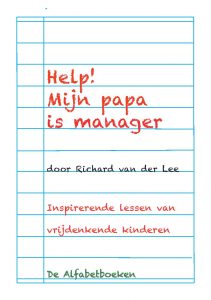 Help!
Mijn papa
is manager
door Richard van der Lee
Inspirerende lessen van
vrijdenkende kinderen
De Alfabetboeken